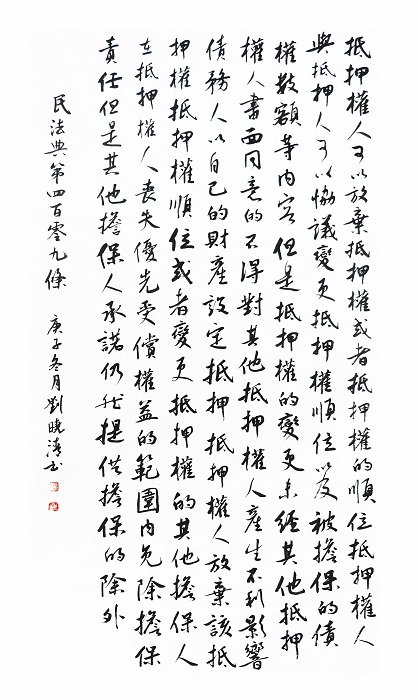 抵押權人可以放棄抵押權或者抵押權的順位抵押權人
與抵押人可以協議變更抵押權順位以及被擔保的債
權數額等内容但是抵押權的變更未經其他抵押
權人書面同意的不得對其他抵押權人產生不利影響
債務人以自己的財產設定抵押抵押權人放棄該抵
押權抵押權順位或者變更抵押權的其他擔保人
在抵押權人喪失優先受償權益的範圍内免除擔保
責任但是其他擔保人承諾仍然提供擔保的除外
民法典第四百零九條 庚子冬月劉曉書